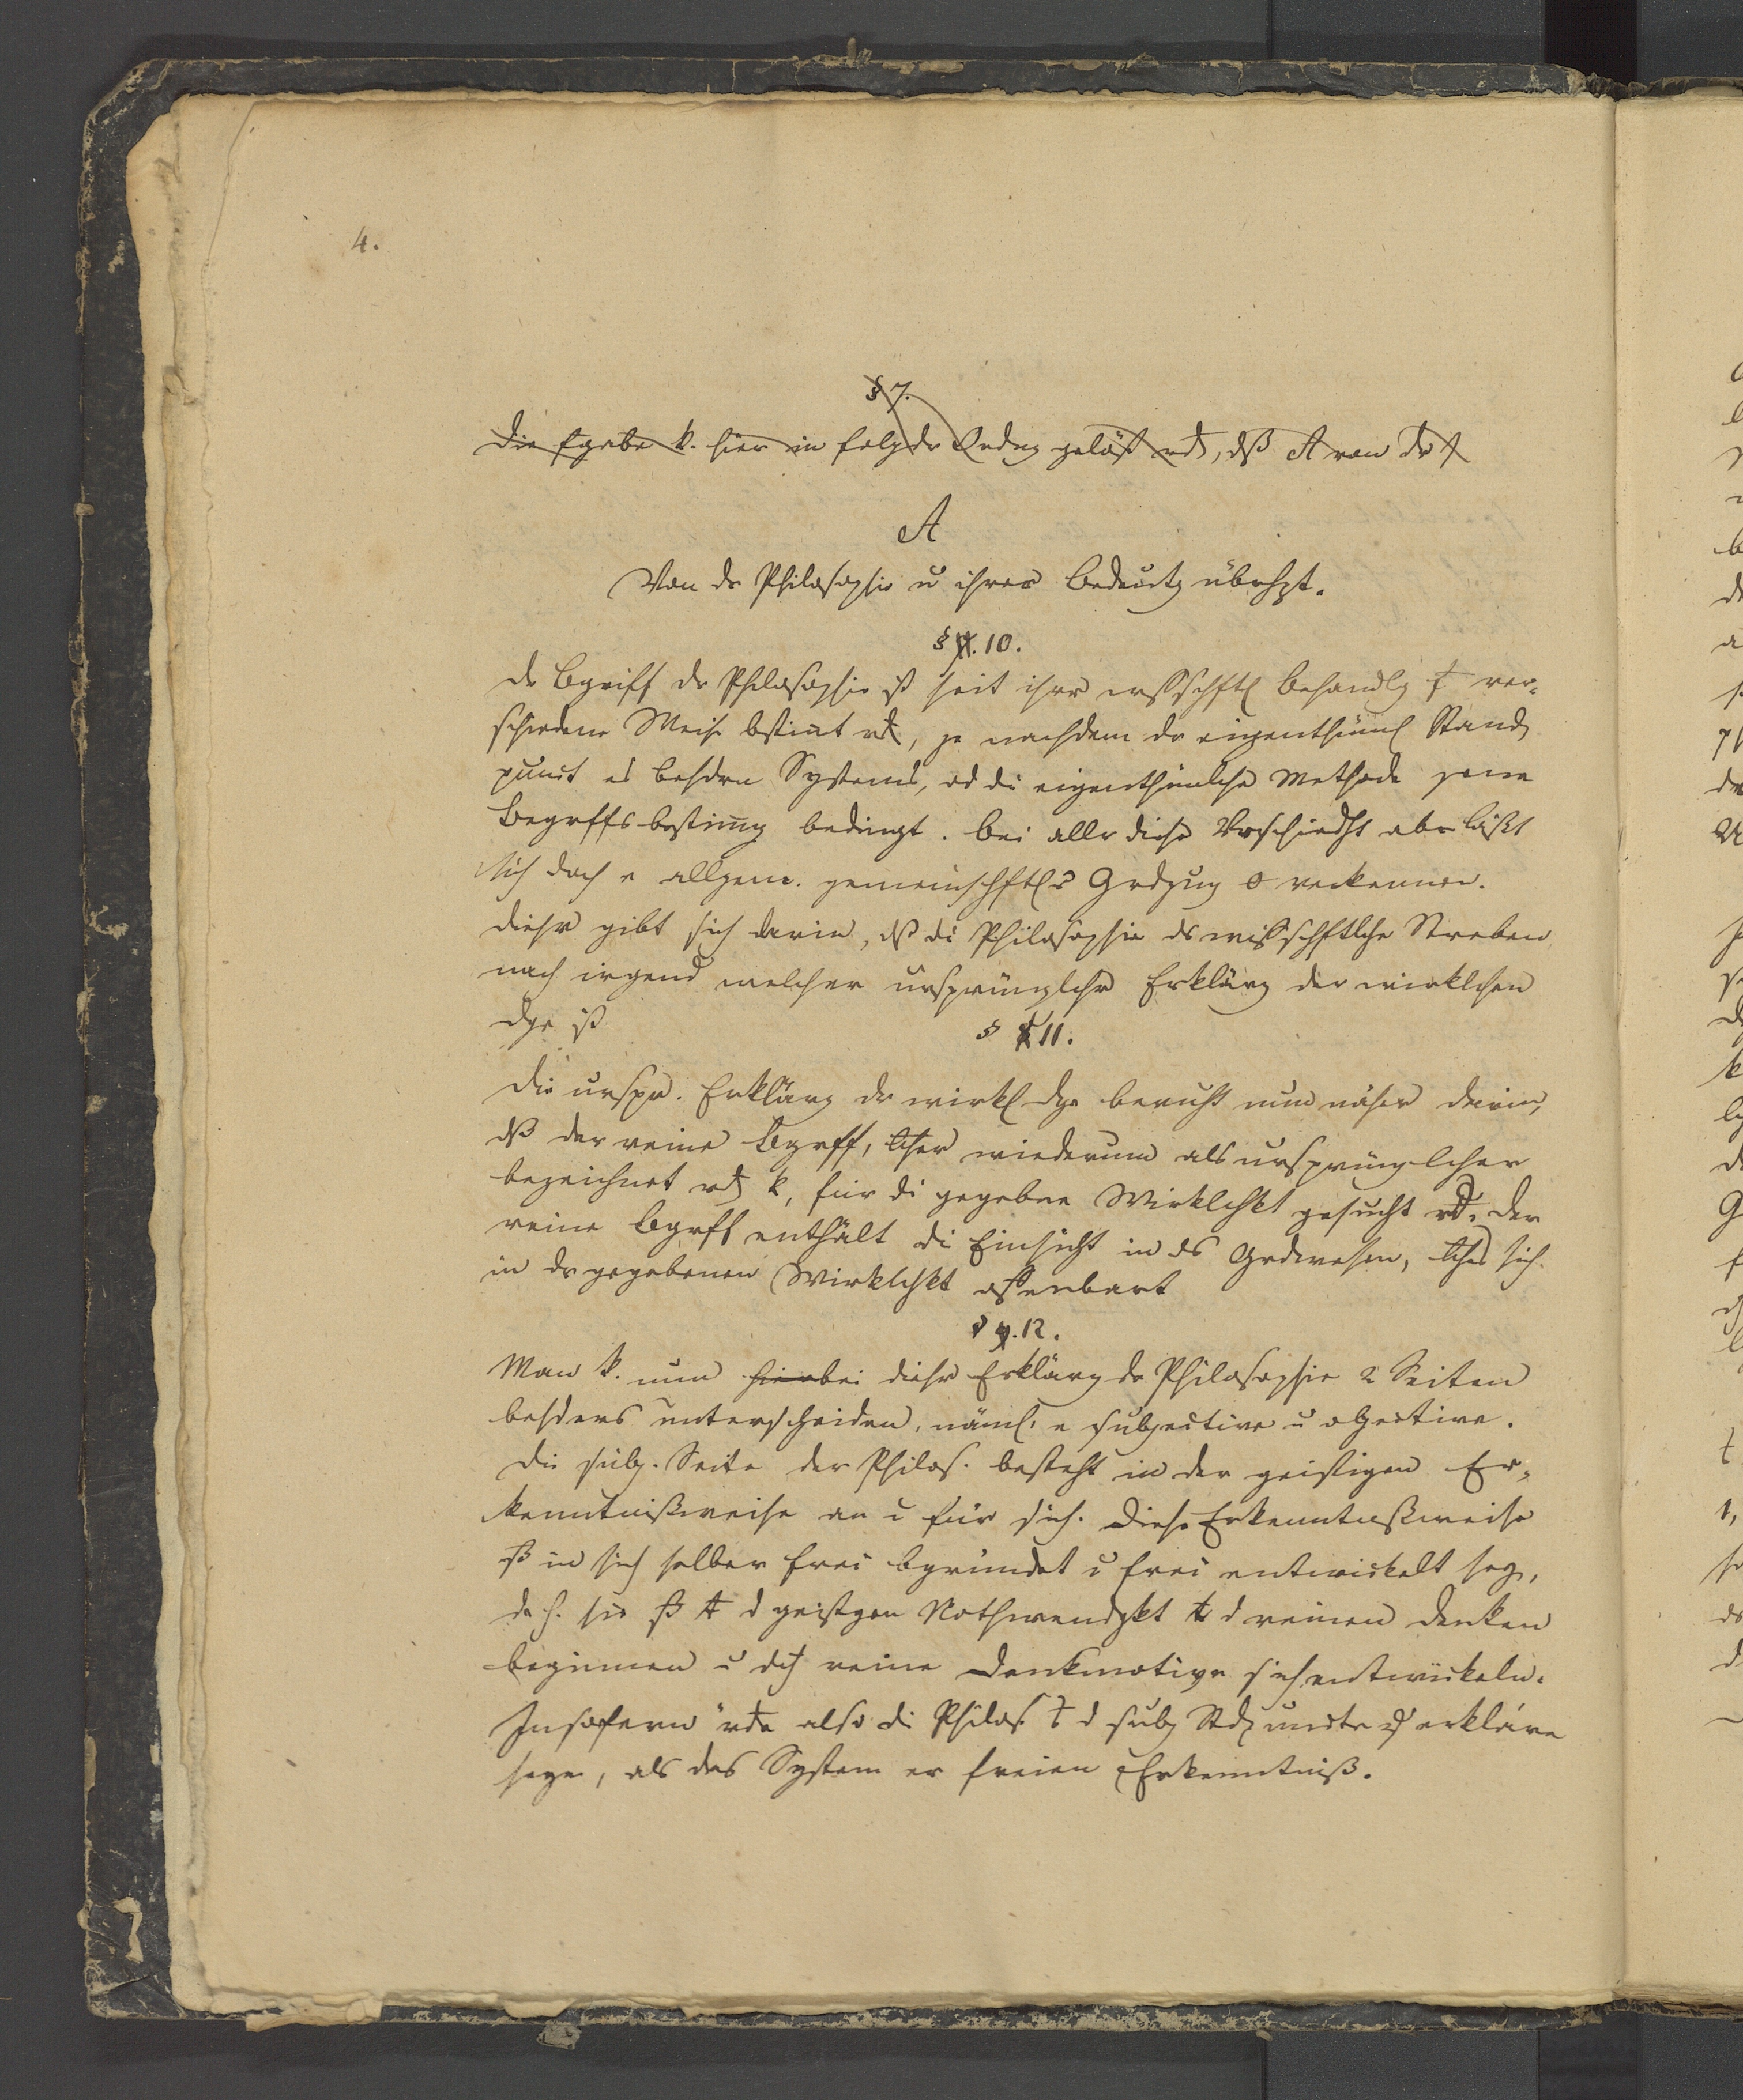 4.
§ 7.
Die fgabe k. hier in folgdr Ordng gelöst wd, dß A von dr
A
Von dr Philosophie u ihrer Bedeutg übrhpt.
§ 10.
Dr Bgriff dr Philosophie ist seit ihrr wssschftl Behandlg f ver-
schiedene Weise bstimt wd, je nachdem dr eigenthüml Stand
punct es besdrn Systems, od di eigenthümlche Methode jene
Begrffsbestimg bedingt. Bei allr diesr Vrschiedht abr läßt
sich doch e allgem. gemeinschftls Grdzug o verkennen.
Diesr gibt sich darin, dß di Philosophie ds wissschftlche Streben
nach irgend welcher ursprünglchr Erklärg der wirklchen
Dge ist
§ 11.
Die urspr. Erklärg dr wirkl Dge beruht nun näher darin,
dß der reine Bgrff, lcher wiederum als ursprünglcher
bezeichnet wd k, für di gegebne Wirklchkt gesucht wd. Der
reine Bgrff enthält di Einsicht in ds Grdwesen, lches sich
in dr gegebenen Wirklchkt offenbart
§ 12.
Man k. nun hierbei diesr Erklärg dr Philosophie 2 Seiten
besdrs unterscheiden, näml. e subjective u objective.
Die subj. Seite der Philos. besteht in der geistigen Er-
kenntnißweise an u für sich. Diese Erkenntnßweise
ß in sich selber frei bgründet u frei entwickelt sey,
d. h. sie ß d geistgen Nothwendgkt d reinen Denken
beginnen u dch reine Denkmotive sich entwickeln.
Insofern wde also di Philos. d subj Stdpuncte z erkläre
seyn, als das System er freien Erkenntniß.